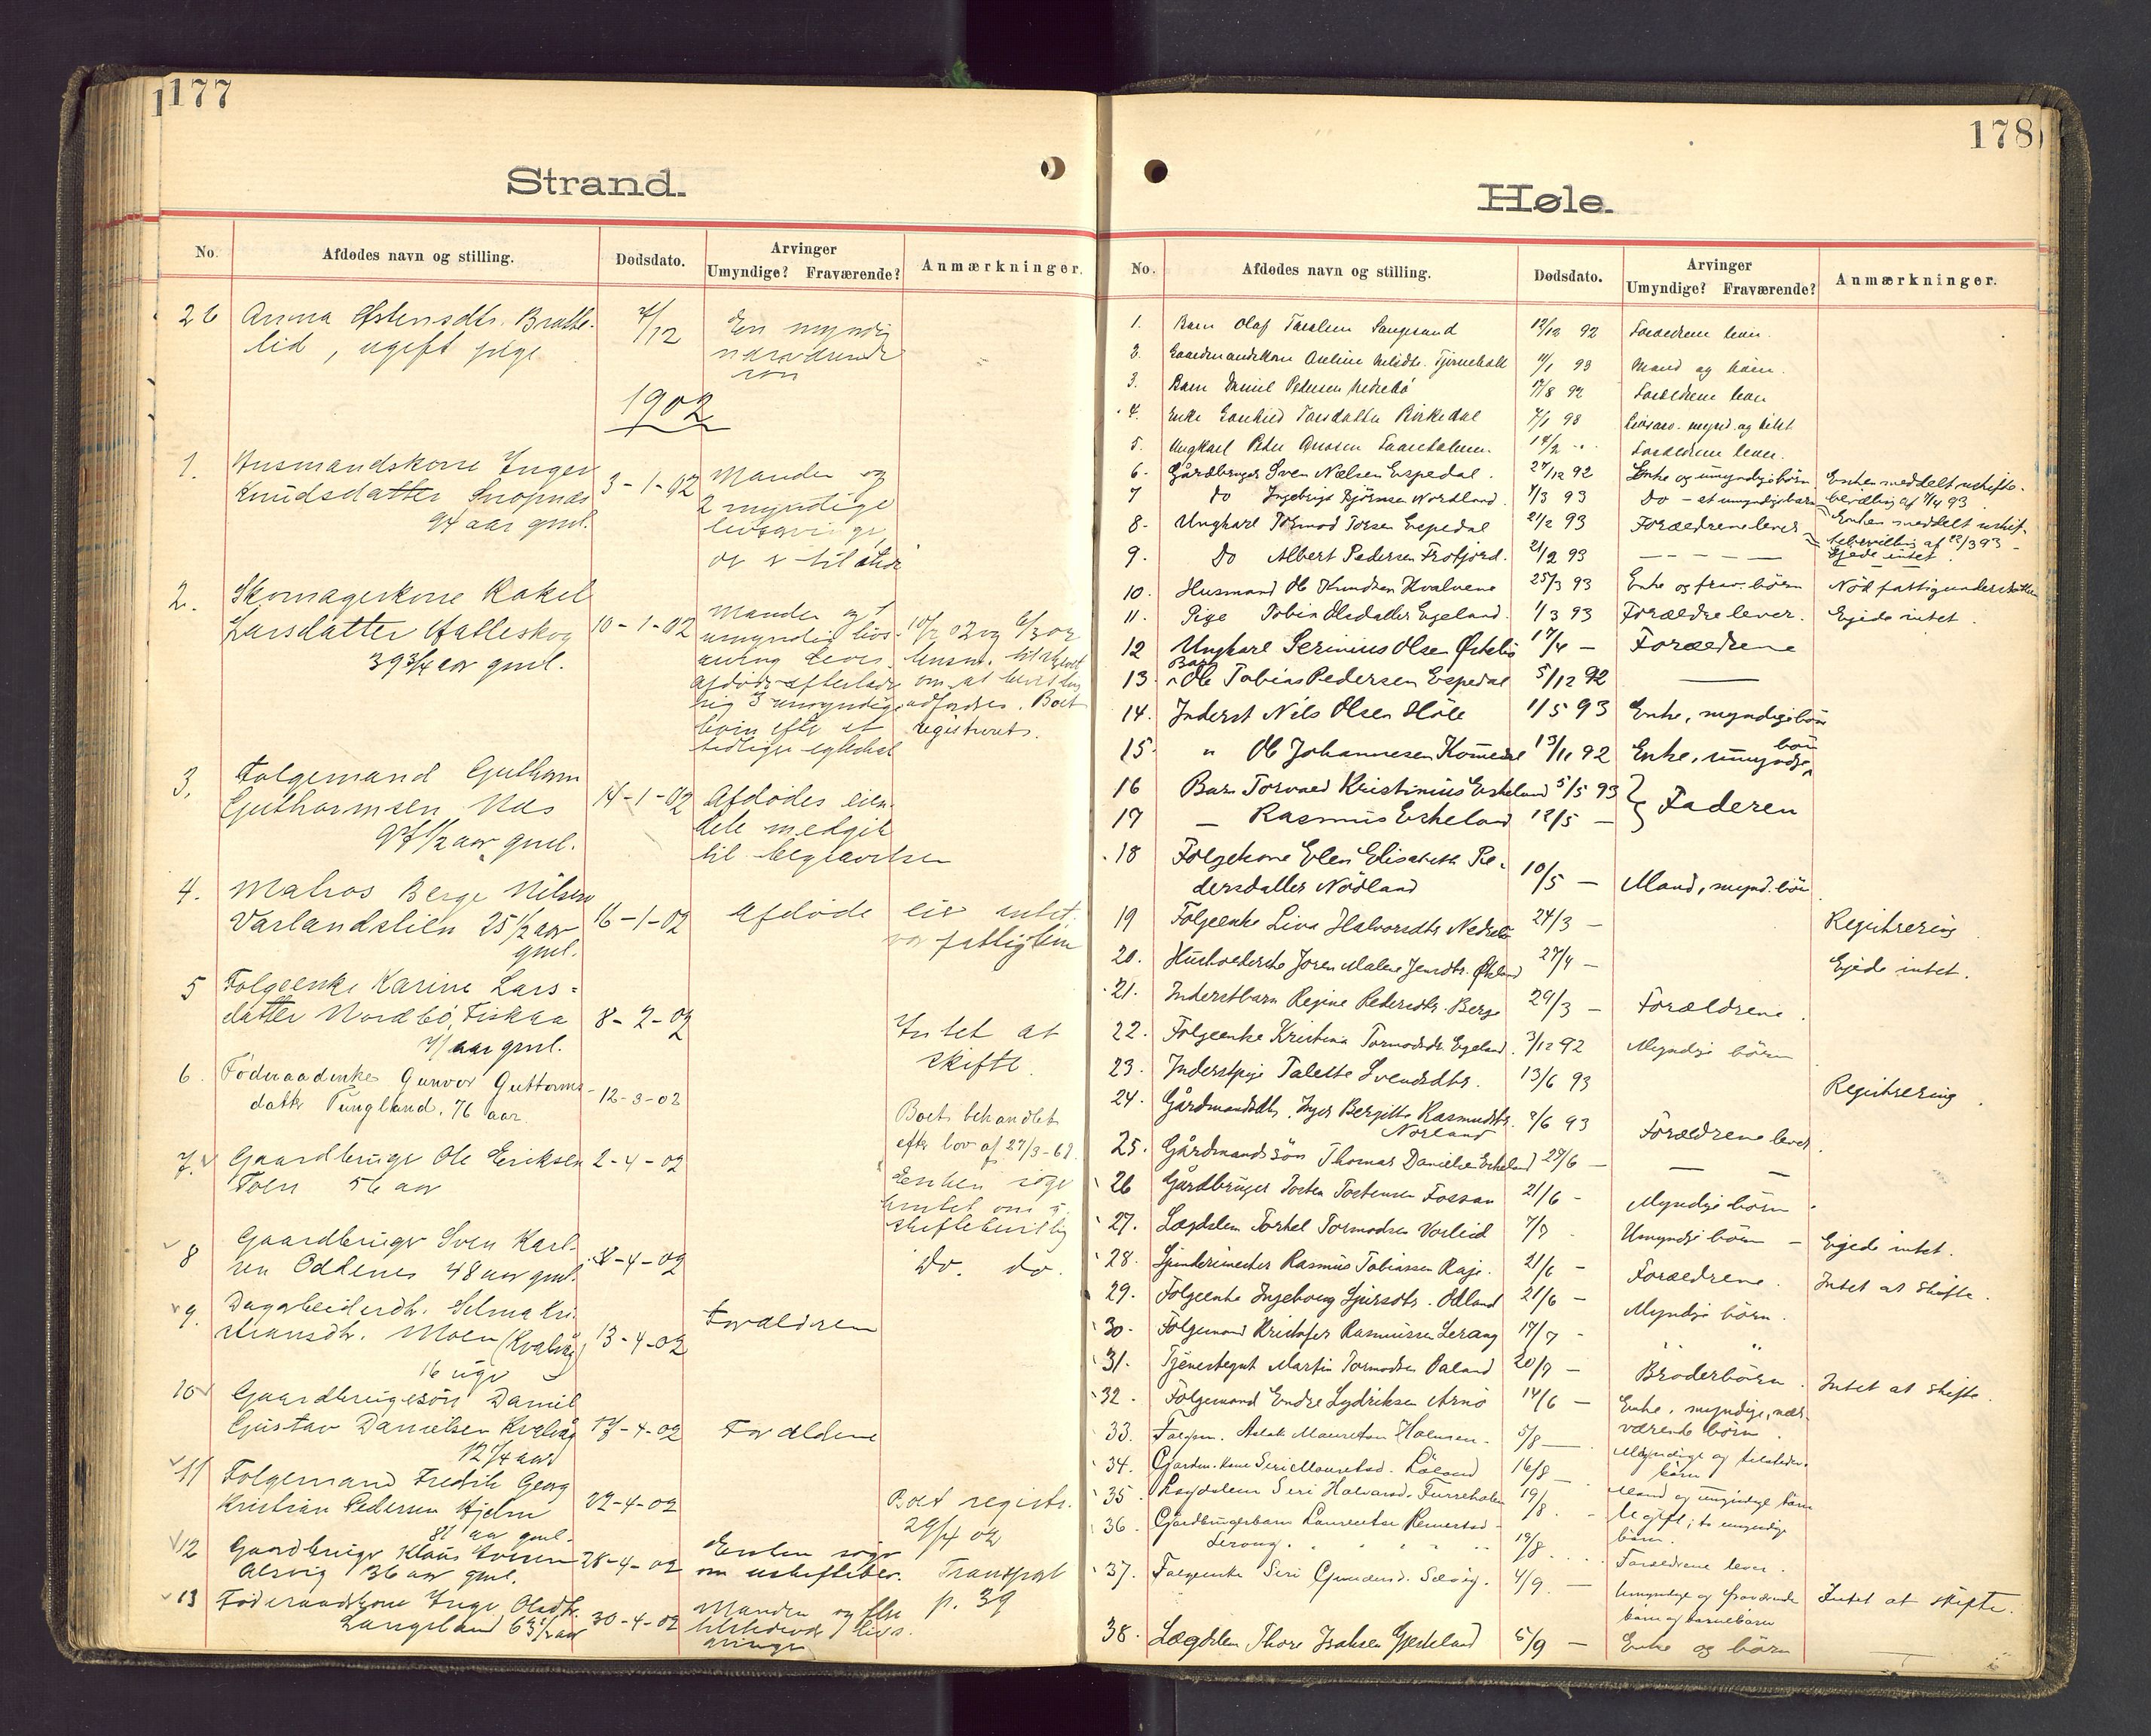 177
Strand.
No. Afdødes navn og stilling. Dødsdato. Arvinger Anmærkninger.
Umyndige? Fraværende?
26 Anna Østensdtr. Bratte-
lid, ugift pige 4/12 En myndig
nærværende
søn
1902
1. Husmandskone Inger
Knudsdatter Snopnæs 3-1-02 Manden og
94 aar gml. 2 myndige
livsarvinger
2. Skomagerkone Rakel
Larsdatter Halleskog 10-1-02 Manden og 1
39 3/4 aar gml. umyndig livs-
arving lever.
afdøde efterlader
sig 3 umyndige
børn efter et
tidligere egteskab
om at bevilling
udfordres. Boet
registreret.
3. Følgemand Guthorm
Guthormsen Næs 14-1-02 Afdødes eien-
dele medgik
til begravelsen
4. Matros Berge Nilsen
Varlandslien 25 1/2 aar 16-1-02 Afdøde eier intet
gml. var fattiglem
5 Følgeenke Karine Lars-
datter Nordbø, Fiskaa 8-2-02 Intet at
71 aar gml. skifte.
6. Føderaadenke Gunvor Guttorms-
datter Tungland. 76 aar. 12-3-02 Boet behandlet
efter lov af 27/3-69.
7. Gaardbruger Ole Eriksen 2-4-02
56 aar Enken søger
Amtet om u-
skiftebevilling
8 Gaardbruger Sven Karl-
sen Odlenes 48 aar gml. 8-4-02 Do. do.
9. Dagarbeiderdtr. Selma Kri-
stiansdtr. Moen (Kvalvåg) 13-4-02 Forældrene
16 uger
10 Gaardbrugersøn Daniel
Gustav Danielsen Kvalvåg 17-4-02 Forældrene
12 1/4 aar
11 Følgemand Fredrik Georg
Kristian Pedersen Hjelm 22-4-02 Boet registr.
81 aar gml. 29/4 02
12 Gaardbruger Klaus Iversen 28-4-02 Enken søger
Alsvig 36 aar gml. om uskiftebev. Transport
p. 39
13 Føderaadskone Inger Olsdtr.
Langeland 63 1/2 aar 30-4-02 Manden og flere
tilstedevær. livs-
arvinger
178
Høle.
No. Afdødes navn og stilling. Dødsdato. Arvinger Anmærkninger.
Umyndige? Fraværende?
1. Barn Olaf Taralsen Sangesand 12/12 92 Forældrene lever.
2. Gaardmandskone 11/1 93 Mand og børn.
3. Barn Daniel Pedersen Nedrebø 17/8 92 Forældrene lever
4. Enke Gunhild Torsdatter Birkedal 7/1 93 Livsarv. mynd. og tilst.
5. Ungkarl Peder 14/2 Forældrene lever.
6. Gårdbruger Sven Nielsen Espedal. 27/12 92 Enke og umyndige børn Enken meddelt uskifte-
bevilling af 7/4 93
7 Do Ingebrigt Bjørnsen Nordland. 7/3 93 Do - et umyndigt barn Enken meddelt uskif-
tebevilling af 22/3 93
8. Ungkarl Tormod Torsen Espedal 21/2 93 Forældrene lever Ejede intet.
9. Do Albert Pedersen Frafjord. 21/2 93 — — — — —
10. Husmand Ole Knudsen Kvalvene 25/3 93 Enke og frav. børn Nød fattigunderstøttelse
11. Pige Tobia Olsdatter Egeland. 1/3 93 Forældre lever. Ejede intet.
12 Ungkarl Serinius Olsen Østebø 17/4 — Forældrene
13. Barn Ole Tobias Pedersen Espedal 5/12 92 —
14. Inderst Nils Olsen Høle 1/5 93 Enke, myndige børn
15. " Ole Johannesen 13/11 92 Enke, umyndige børn
16 Barn Torvald Kristinius Eskeland 5/5 93 } Faderen
17 — Rasmus Eskeland 12/5 —
18 Følgekone Elen Elisabeth Pe-
dersdatter Nodland 10/5 — Mand, mynd. børn
19 Følgeenke Liva Halvorsdtr Nedrebø 24/3 — Registrering
20. Husholderske Joren Malene Jensdtr. 27/4 — Ejede intet.
21. Inderstbarn Regine Pedersdtr. Berge 29/3 — Forældrene.
22. Følgeenke Kristina Tormodsdtr. Egeland. 3/12 92 Myndige børn
23. Inderstpige Talette Svendsdtr. 13/6 93 Registrering.
24. Gårdmandsdtr. Inger Bergitte Rasmusdtr. 3/6 93 Forældrene lever.
Norland
25. Gårdmandssøn Thomas Danielsen Eskeland 27/6 — — —
26 Gårdbruger Tosten Tostensen Fossan 21/6 - Myndige børn.
27. Lægdslem Torkel Tormodsen Vorlid 7/7 Umyndige børn - Ejede intet.
28. Rasmus Tobiassen Raje. 21/6 - Forældrene. Intet at skifte.
29. Følgeenke Ingeborg Odland 21/6 - Myndige børn.
30. Følgemand Kristofer Rasmussen Lerang 17/7 - " "
31. Tjenestegut Martin Tormodsen Paland 20/7 — Broderbørn. Intet at skifte.
32. Følgemand Endre Lydriksen Arnø 14/6 — Enke, myndige, nær-
værende børn.
33. Følgem. Aslak Mauretsen Holmen. 5/8 — Myndige og tilstedev.
børn
34. Gjardm. kone Seri Mauretsd. Løland 16/8 — Mand og umyndige børn
35. Lægdslem Seri Halvarsd. 19/8. - Ugift; to umyndige
børn.
36. Gjardbrugerbarn Laurentse Reinertsd.
Lerang. 19/8. Forældrene lever.
37. Følgeenke Seri Gjmundsd. Sævig. 4/9. — Umyndige og fraværende Intet at skifte.
børn og barnebarn
38. Lægdslem Thore Isaksen Gjesteland 5/9 — Enke og børn —